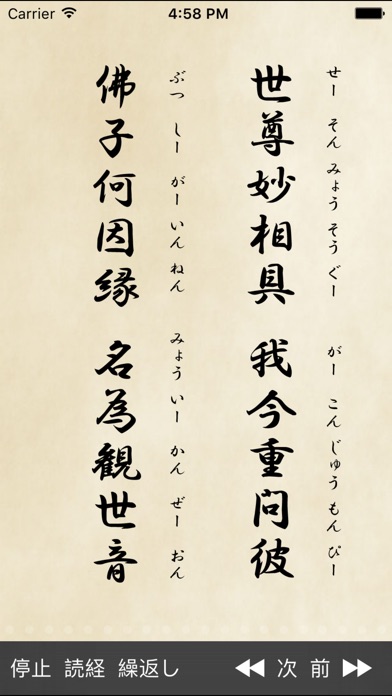 Carrier 4:58 PM
世尊妙相具 我今重問彼
せー そん みょう そう ぐー がー こん じゅう もん ぴー
佛子何因縁 名為観世音
ぶつ しー がー いん ねん みょう いー かん ぜー おん
停止 読経 繰返し 次 前